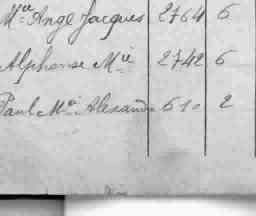 M.ie Ange Jacques 2764 6
Alphonse M.ie 2742 6
Paul M.ie Alexandre 610 2